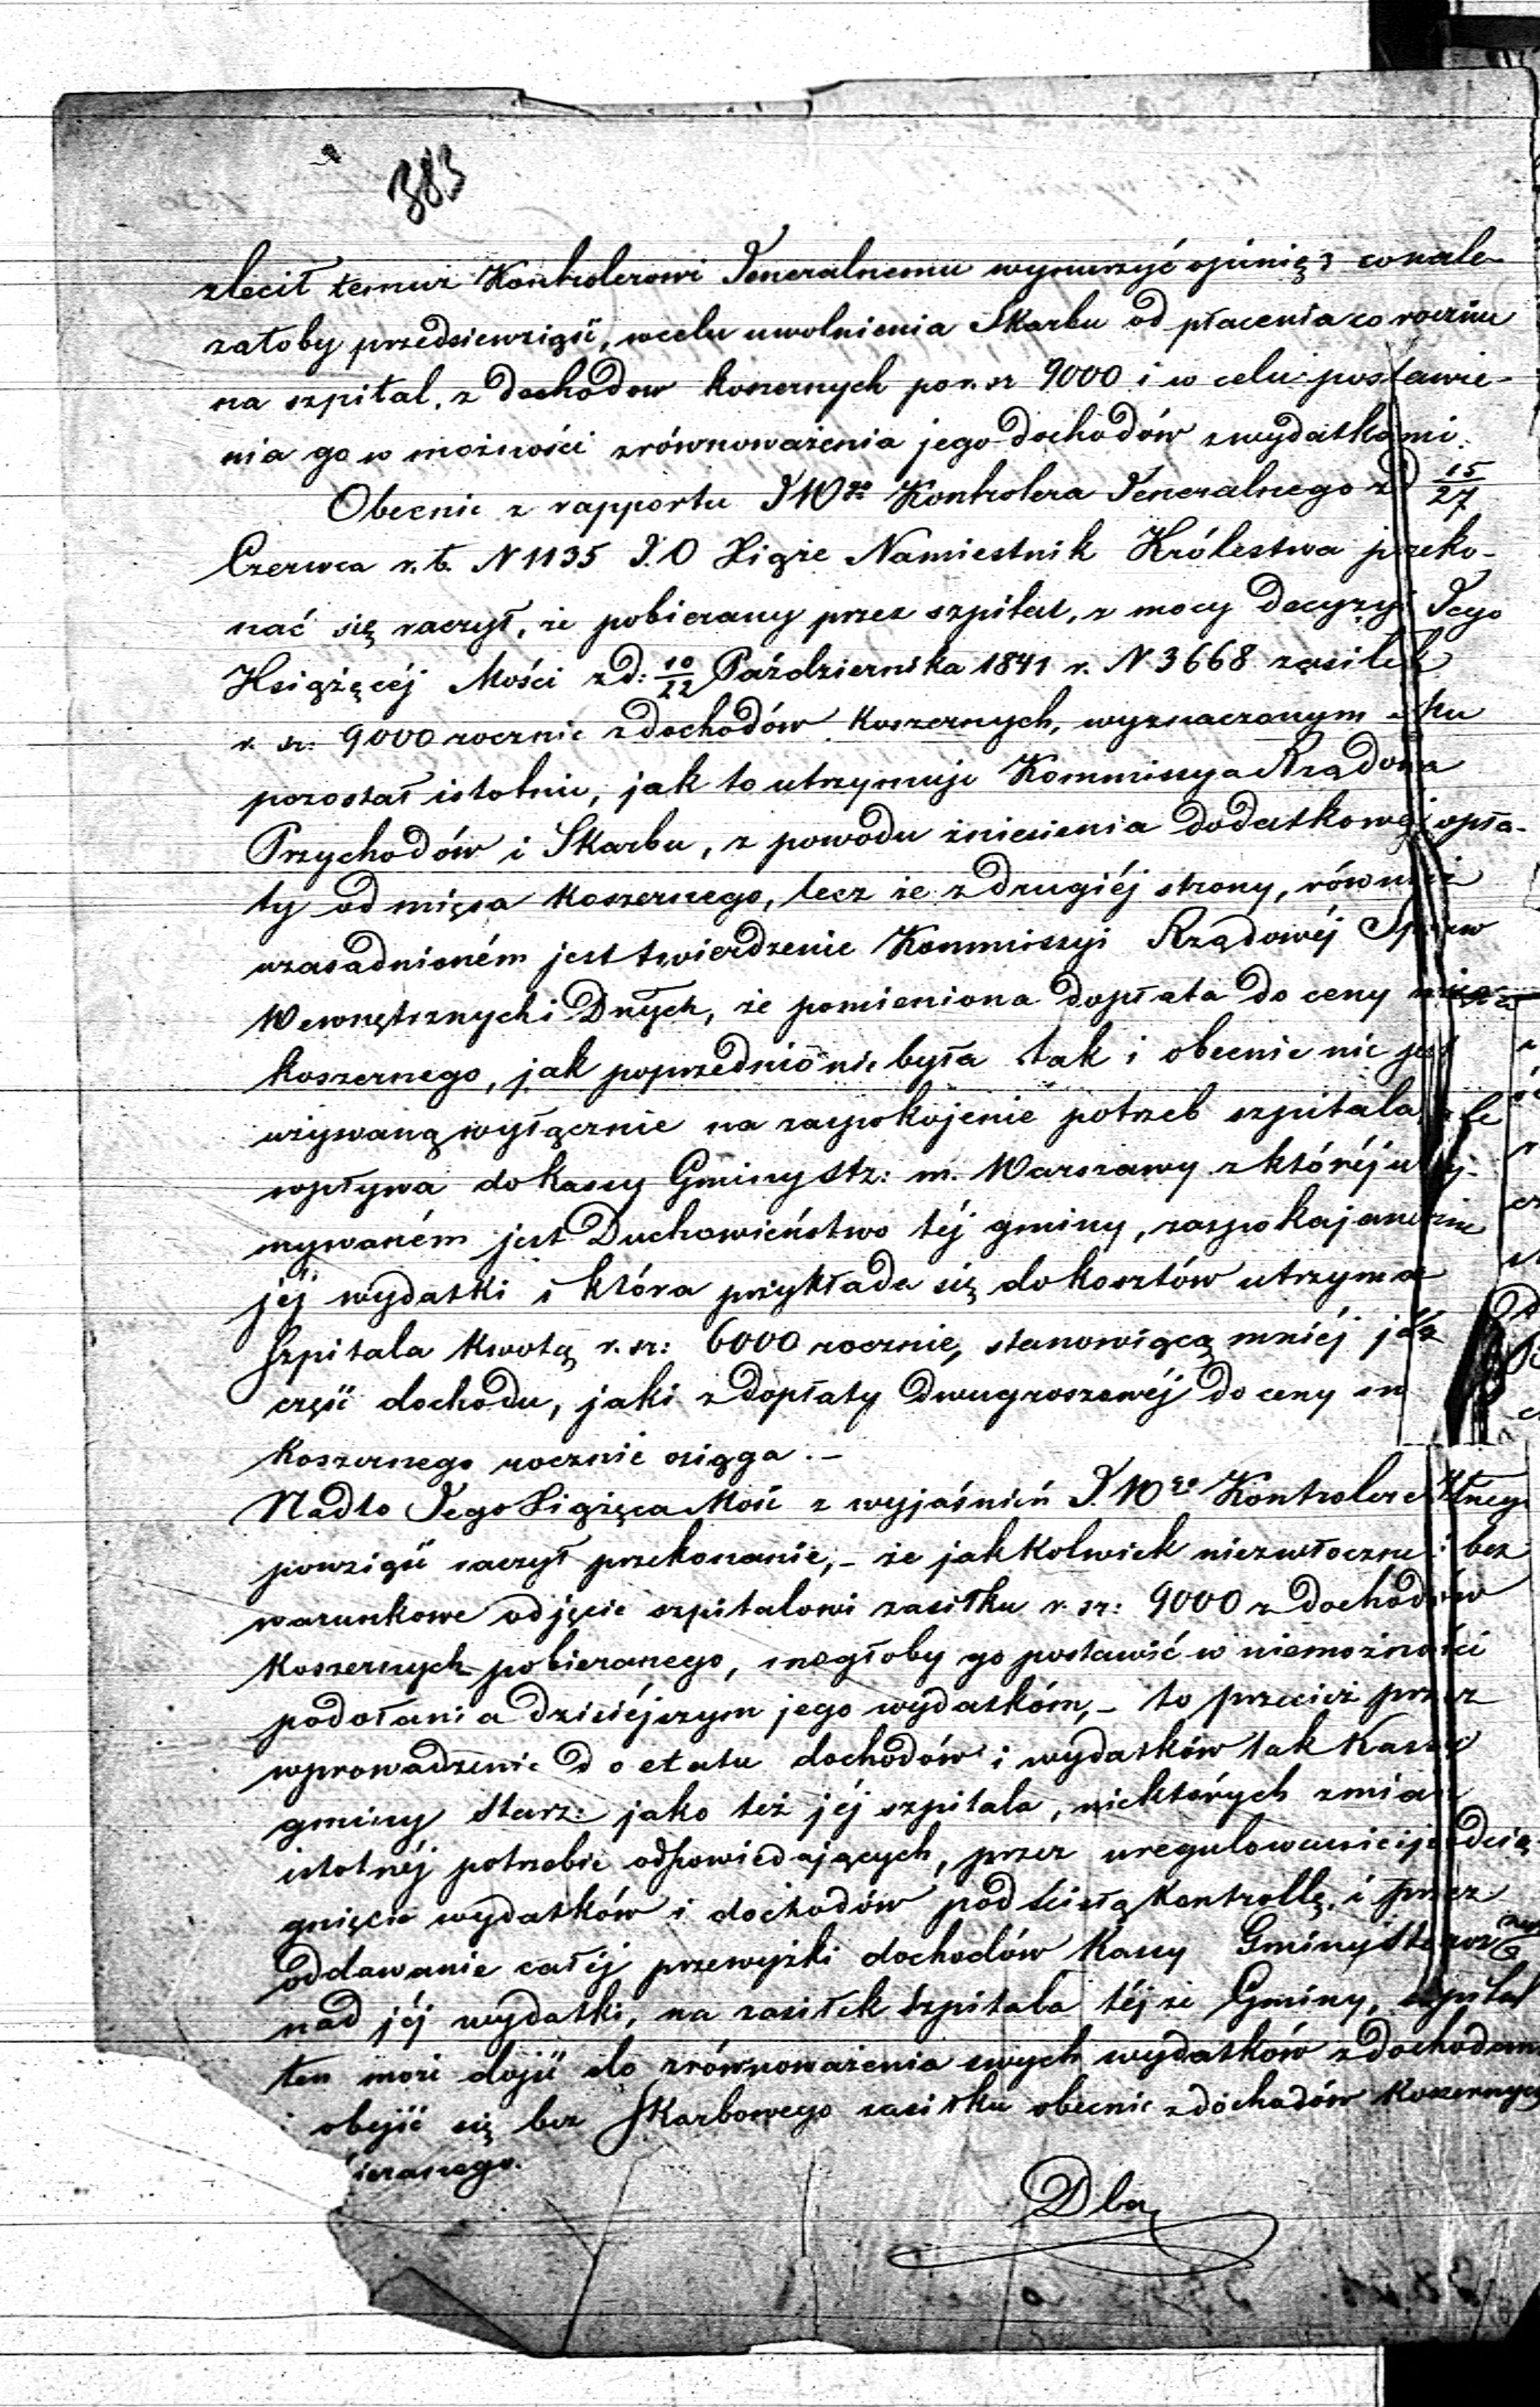 383
zlecił temuż Kontrolerowi Jeneralnemu wynurzyć opinię, co nale-
żałoby przedsiewziąść, w celu uwolnienia Skarbu od płacenia co rocznie
na szpital, z dochodow koszernych po r. sr 9000 i w celu postawie-
nia go w możności zrównoważenia jego dochodów z wydatkami.
Obecnie z rapportu JW⁠go Kontrolera Jeneralnego z d 15/27
Czerwca r. b. N 1135 J. O Xiąże Namiestnik Królestwa przeko-
nać się raczył, że pobierany przez szpital, z mocy decyzyi Jego
Książęcéj Mości z d: 10/22 Października 1841 r. N 3668 zasiłek
r. sr: 9000 rocznie z dochodów koszernych, wyznaczonym
pozostał istotnie, jak to utrzymuje Kommissya Rządowa
Przychodów i Skarbu, z powodu zniesienia dodatkowéj opła-
ty od mięsa koszernego, lecz że z drugiéj strony, również
uzasadnioném jest twierdzenie Kommissyi Rządowéj Spraw
Wewnętrznych i Dnych, że pomieniona dopłata do ceny mięsa
koszernego, jak poprzednio nie była tak i obecnie nie jest
używaną wyłącznie na zaspokojenie potrzeb szpitala, le
wpływa do kassy Gminy Stz: m. Warszawy z któréj utrzy-
mywaném jest Duchowieństwo téj gminy, zaspokajane
jéj wydatki i która przykłada się do kosztów utrzyma
Szpitala kwotą r. sr: 6000 rocznie, stanowiącą mniéj
część dochodu, jaki z dopłaty dwugroszowéj do ceny
koszernego rocznie osiąga. –
Nadto Jego Xiążęca Mość z wyjaśnień J. W⁠go Kontrolera
powziąść raczył przekonanie, – że jakkolwiek niezwłoczne i bez
warunkowe odjęcie szpitalowi zasiłku r. sr: 9000 z dochodów
koszernych pobieranego, mogłoby go postawić w niemożności
podołania dzisiéjszym jego wydatkóm, – to przecież przez
wprowadzenie do etatu dochodów i wydatków tak Kassy
gminy Starz: jako też jéj szpitala, niektórych zmian
istotnéj potrzebie odpowiedających, przez uregulowanie i podcią
gnięcie wydatków i dochodów pod ścisłą kontrollę, i przez
oddawanie całéj przewyżki dochodów Kassy Gminy Starozney
nad jéj wydatki, na zasiłek Szpitala téjże Gminy, szpital
ten może dojść do zrównoważenia swych wydatków z dochodami
i obejść się bez Skarbowego zasiłku obecnie z dochodów koszernych
ieranego.
Dla